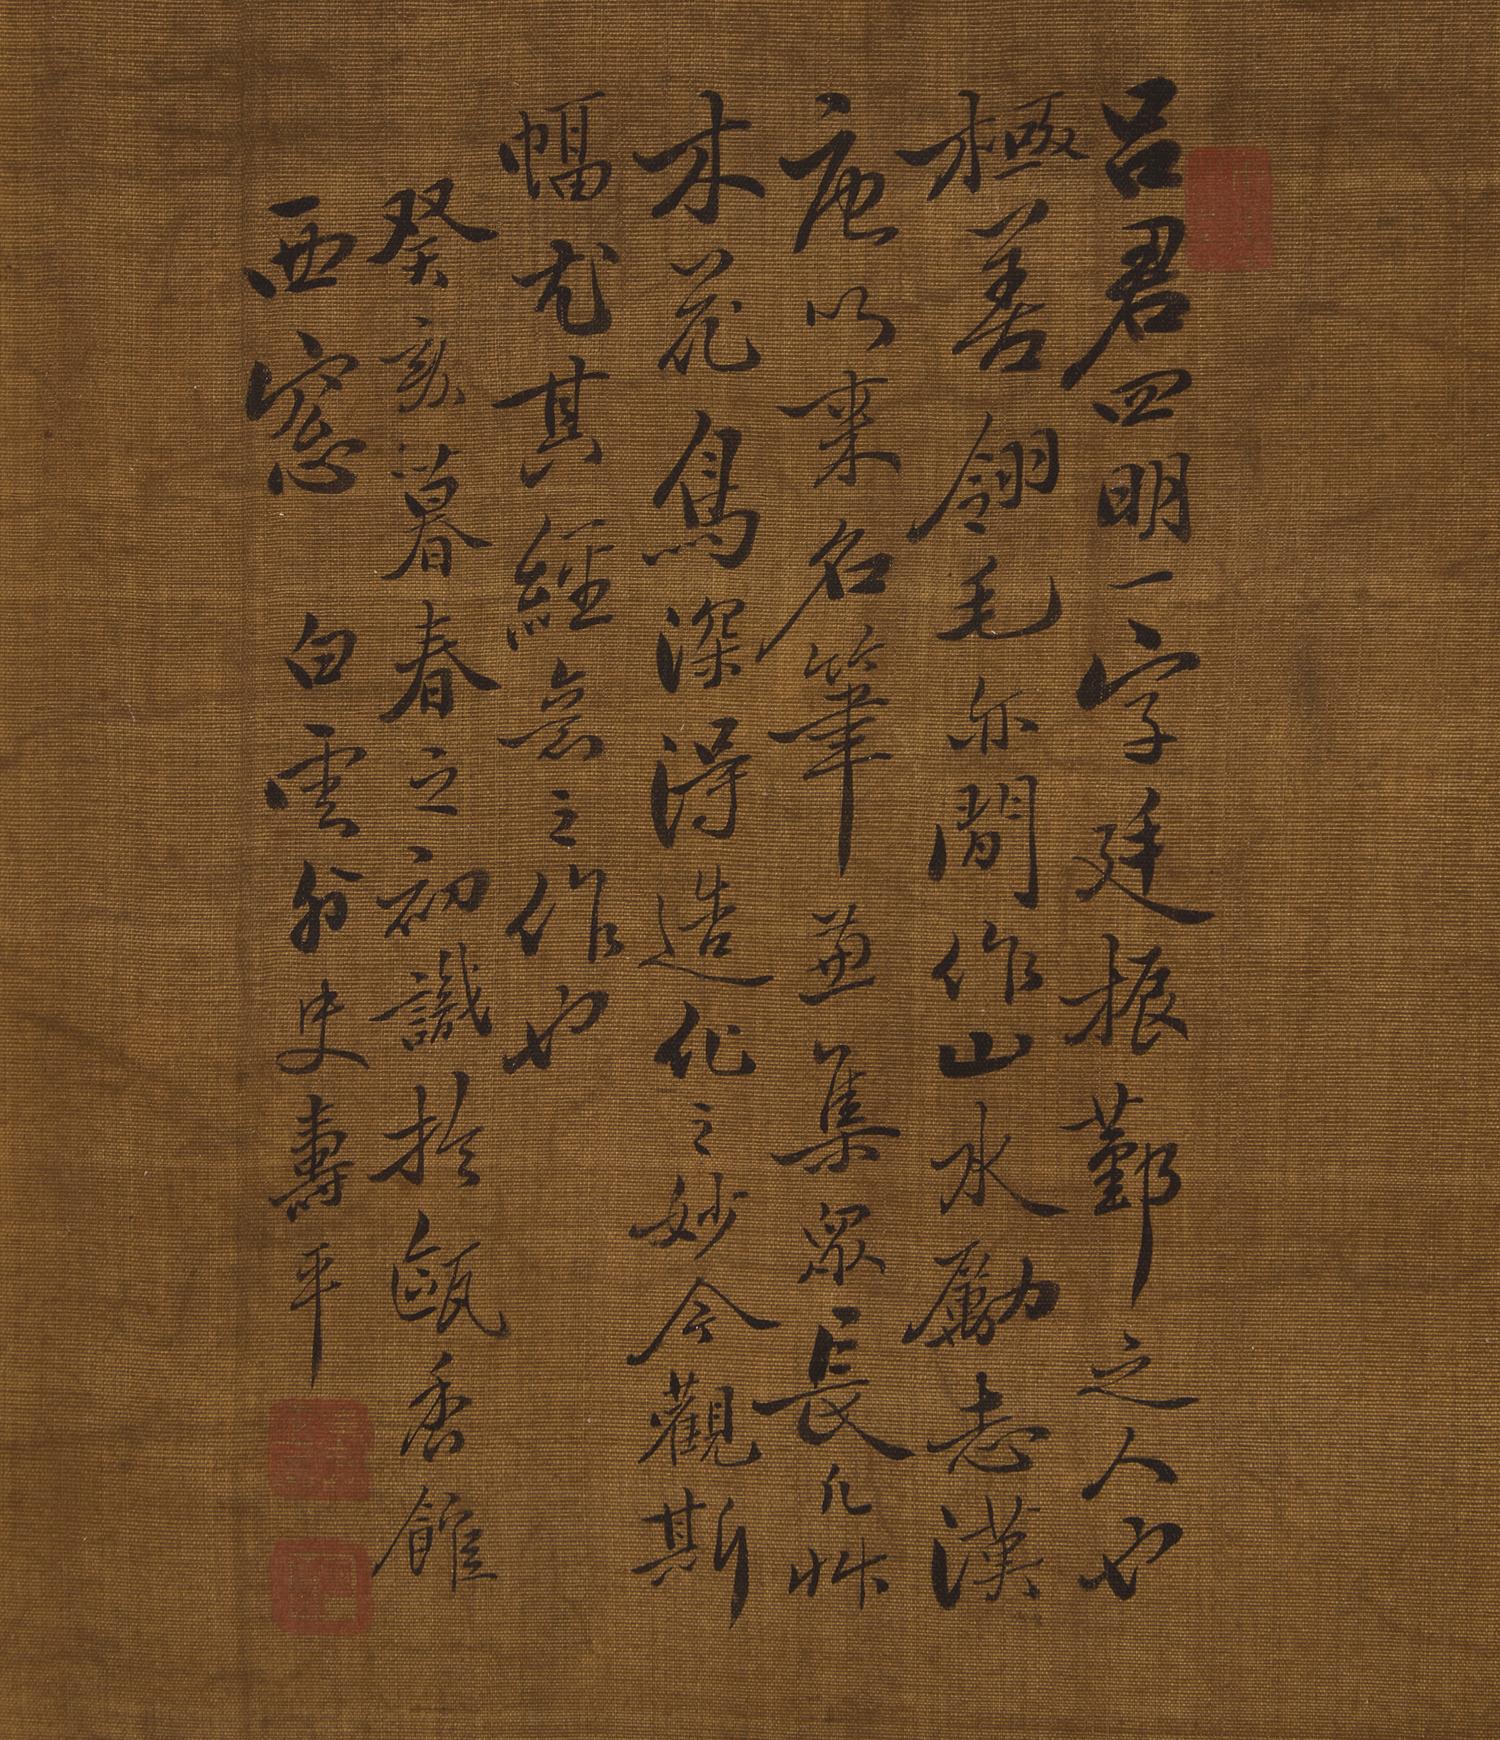 呂君四明一字廷振鄞之人也
極善翎毛亦間作山水勵志漢
唐以來名筆並集眾長凡艸
木花鳥深得造化之妙今觀斯
幅尤其經意之作也
癸亥暮春之初識於甌香館
西窓 白雲外史壽平